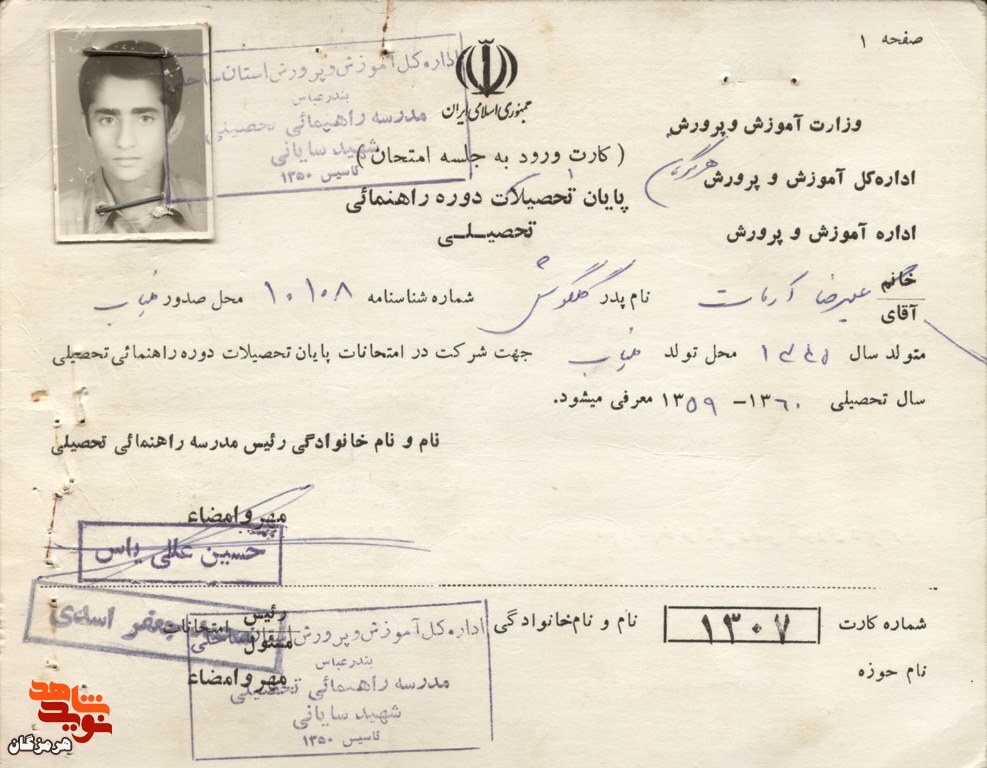 صفحه ۱
جمهوری اسلامی ایران
وزارت آموزش و پرورش
اداره‌کل آموزش و پرورش هرمزگان
اداره آموزش و پرورش
( کارت ورود به جلسه امتحان )
پایان تحصیلات دوره راهنمائی
تحصیلی
اداره کل آموزش و پرورش استان ساحلی
بندرعباس
مدرسه راهنمائی تحصیلی
شهید سایانی
تاسیس ۱۳۵۰
خانم
آقای علیرضا نام پدر شماره شناسنامه ۱۰۱۰۸ محل صدور میناب
متولد سال ۱۳۴۵ محل تولد میناب جهت شرکت در امتحانات پایان تحصیلات دوره راهنمائی تحصیلی
سال تحصیلی ۱۳۶۰ - ۱۳۵۹ معرفی میشود.
نام و نام خانوادگی رئیس مدرسه راهنمائی تحصیلی
مهر و امضاء
حسین
شماره کارت ۱۳۰۷ نام و نام‌خانوادگی رئیس امتحانات
مسئول
نام حوزه
مهر و امضاء
جعفر اسدی
اداره کل آموزش و پرورش استان ساحلی
بندرعباس
مدرسه راهنمائی تحصیلی
شهید سایانی
تاسیس ۱۳۵۰
نوید شاهد
هرمزگان